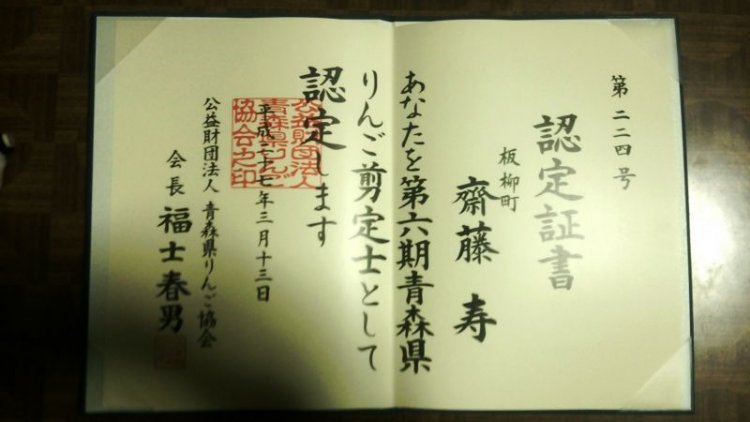 第二二四号
認定証書
板柳町
齋藤 寿
あなたを第六期青森県
りんご剪定士として
認定します
平成二十七年三月十三日
公益財団法人 青森県りんご協会
会長 福士春男
公益財団法人
青森県りんご
協会之印